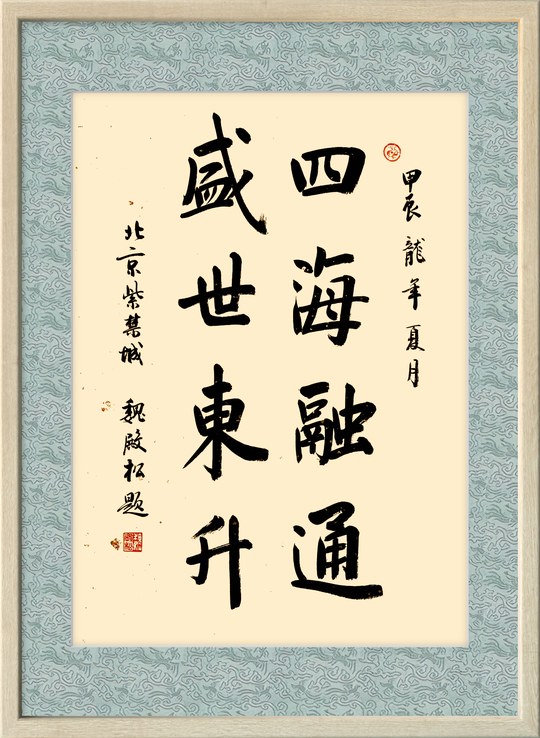 甲辰龍年夏月
四海融通
盛世東升
北京紫禁城 魏殿松題